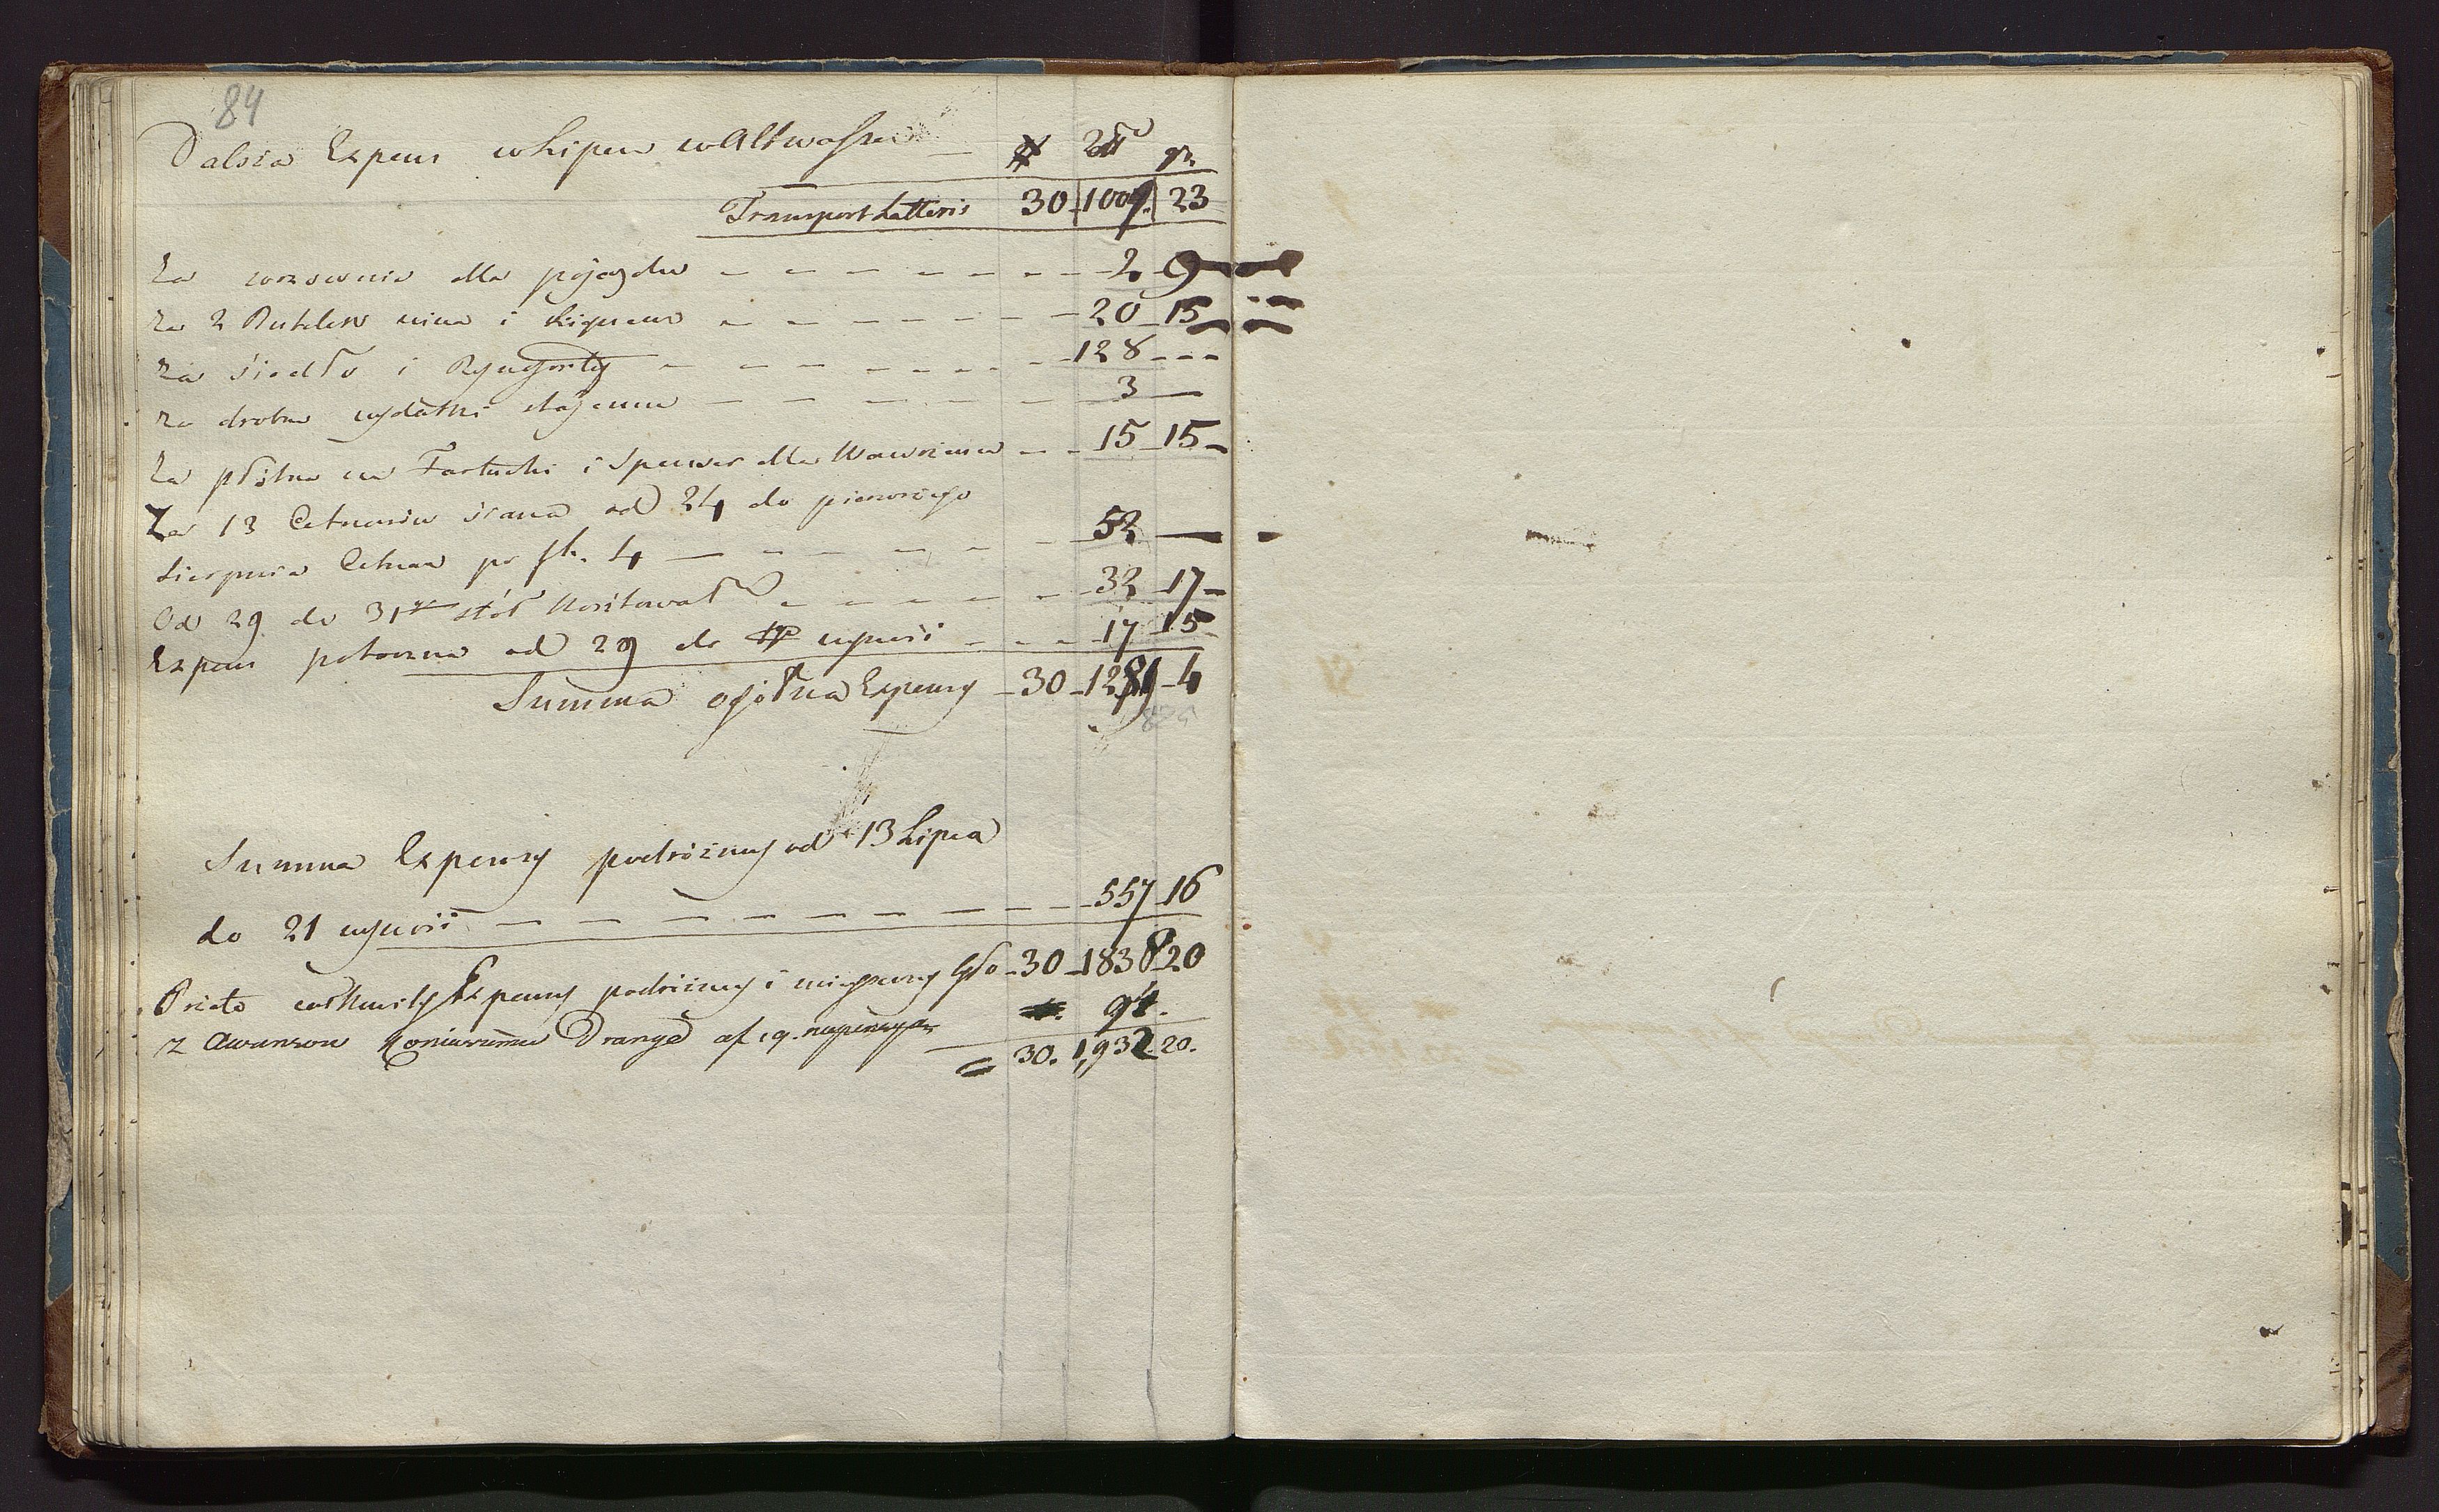 84
Dalsza Expens w Lipcu w Altwasser — # Złł gr.
Transport Latteris 30 1009. 23
Za wozownie dla pojazdu — 2 9
Za 2 Butelek wina i Liqueur — 20 15
Za Siodło i — 128
Za drobne wydatki stajenne — 3 —
Za płótno na Fartuchi i Spencer dla Wawrzenca — 15 15
Za 13 Cetnarów siana od 24 do pierwszego
Sierpnia Cetnar po fl. 4 — 52 —
Od 29 do 31go stół kosztował — 32 17
Expens potoczna od 29 do wynosi — 17 15
Summa ogólna Expensy 30 1281 4
Summa Expensy podróżney od 13 Lipca
do 21 wynosi — 557 16
Przeto Expensy podróżney i 30 1838 20
z Drange 94.
= 30. 1,932. 20.